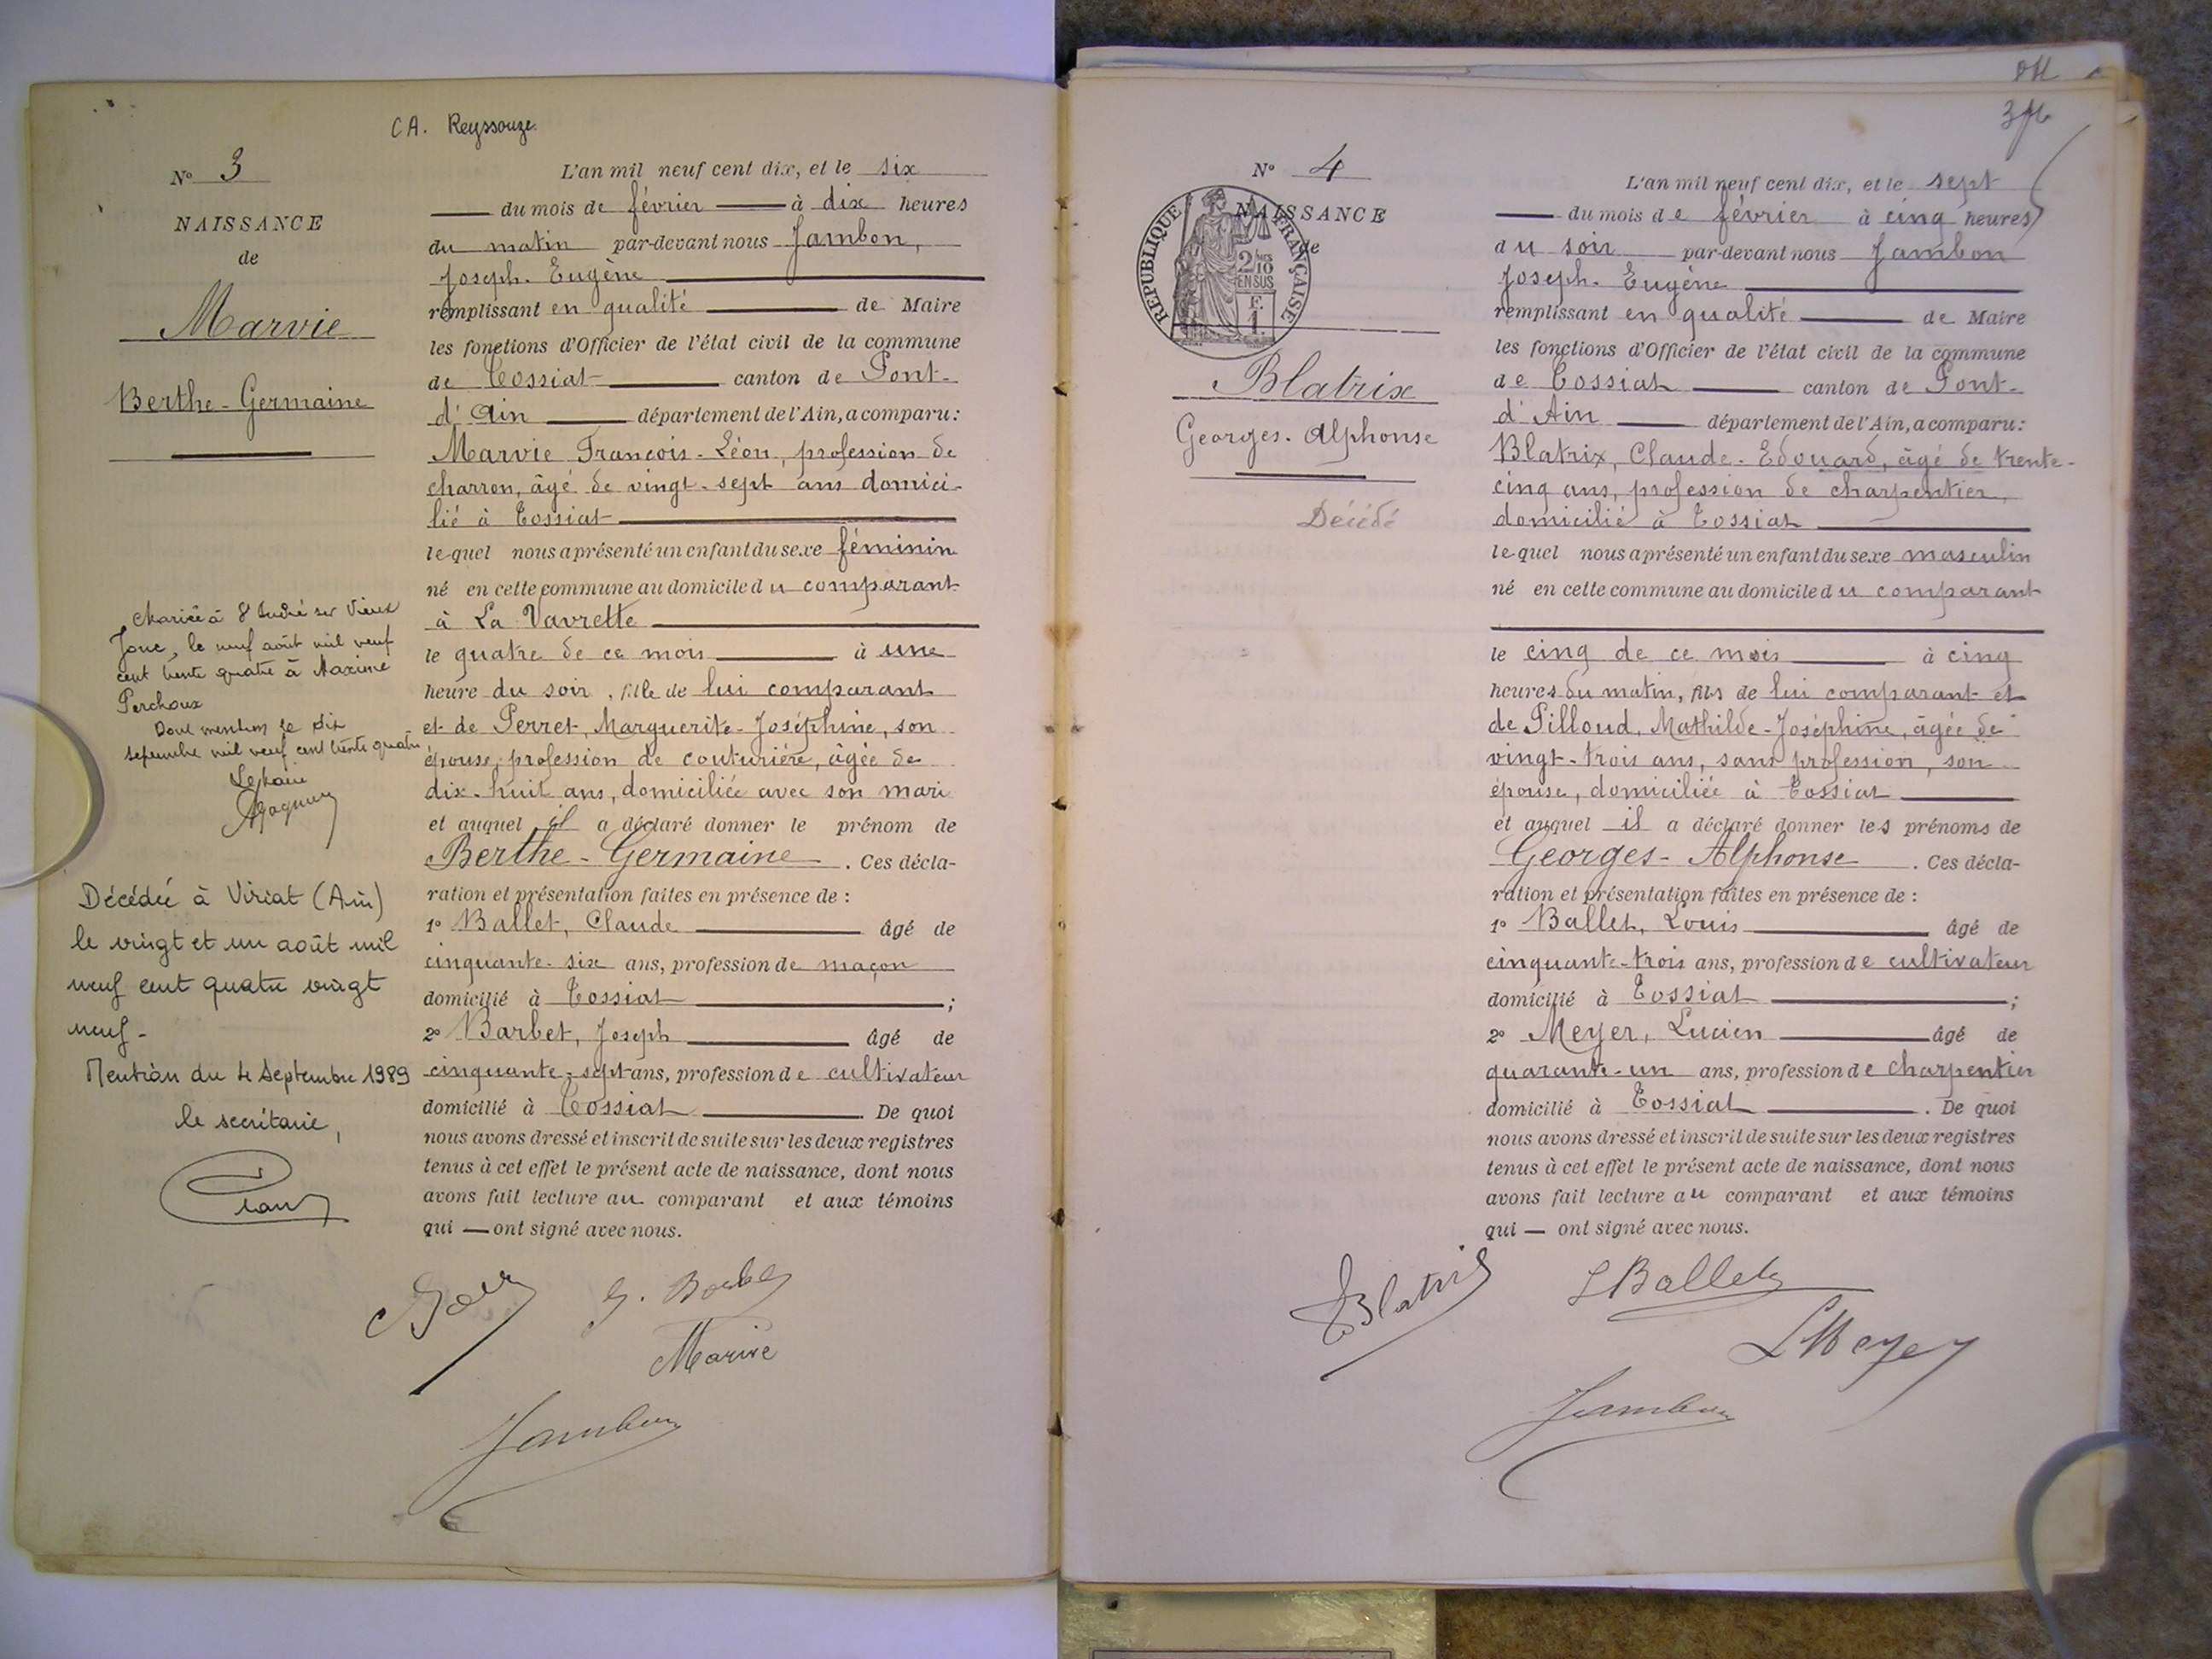 CA. Reyssouze
N° 3
NAISSANCE
de
Marvie
Berthe-Germaine
Mariée à St André sur Vieux
Jonc, le neuf août mil neuf
cent trente quatre à Maxime
Perchoux
Dont mention le dix
septembre mil neuf cent trente quatre
Le Maire
Décédée à Viriat (Ain)
le vingt et un août mil
neuf cent quatre vingt
neuf-
Mention du 4 Septembre 1989
le secrétaire,
L'an mil neuf cent dix, et le six
du mois de février à dix heures
du matin par-devant nous Jambon,
Joseph-Eugène
remplissant en qualité de Maire
les fonctions d'Officier de l'état civil de la commune
de Tossiat canton de Pont-
d'Ain département de l'Ain, a comparu:
Marvie François-Léon, profession de
charron, âgé de vingt-sept ans domici-
lié à Tossiat
lequel nous a présenté un enfant du sexe féminin
né en cette commune au domicile du comparant
à La Vavrette
le quatre de ce mois à une
heure du soir, fille de lui comparant
et de Perret, Marguerite-Joséphine, son
épouse, profession de couturière, âgée de
dix-huit ans, domiciliée avec son mari
et auquel il a déclaré donner le prénom de
Berthe-Germaine. Ces décla-
ration et présentation faites en présence de :
1° Ballet, Claude âgé de
cinquante-six ans, profession de maçon
domicilié à Tossiat ;
2° Barbet, Joseph âgé de
cinquante-sept ans, profession de cultivateur
domicilié à Tossiat. De quoi
nous avons dressé et inscrit de suite sur les deux registres
tenus à cet effet le présent acte de naissance, dont nous
avons fait lecture au comparant et aux témoins
qui — ont signé avec nous.
Marvie
Jambon
396
N° 4
NAISSANCE
de
RÉPUBLIQUE FRANÇAISE
2/10 EN SUS
F. 1.
Blatrix
Georges-Alphonse
Décédé
L'an mil neuf cent dix, et le sept
du mois de février à cinq heures
du soir par-devant nous Jambon
Joseph-Eugène
remplissant en qualité de Maire
les fonctions d'Officier de l'état civil de la commune
de Tossiat canton de Pont-
d'Ain département de l'Ain, a comparu:
Blatrix, Claude-Edouard, âgé de trente-
cinq ans, profession de charpentier,
domicilié à Tossiat
lequel nous a présenté un enfant du sexe masculin
né en cette commune au domicile du comparant
le cinq de ce mois à cinq
heures du matin, fils de lui comparant et
de Pilloud, Mathilde-Joséphine, âgée de
vingt-trois ans, sans profession, son
épouse, domiciliée à Tossiat
et auquel il a déclaré donner les prénoms de
Georges-Alphonse. Ces décla-
ration et présentation faites en présence de :
1° Ballet, Louis âgé de
cinquante-trois ans, profession de cultivateur
domicilié à Tossiat ;
2° Meyer, Lucien âgé de
quarante-un ans, profession de charpentier
domicilié à Tossiat. De quoi
nous avons dressé et inscrit de suite sur les deux registres
tenus à cet effet le présent acte de naissance, dont nous
avons fait lecture au comparant et aux témoins
qui — ont signé avec nous.
Blatrix
L Ballet
L Meyer
Jambon